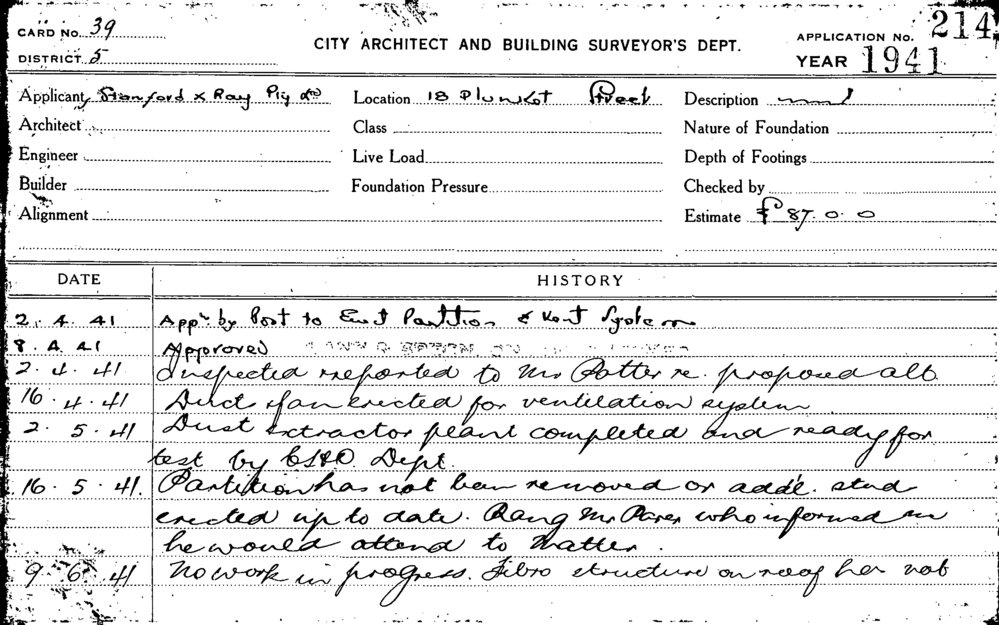 CARD No. 39
DISTRICT 5
CITY ARCHITECT AND BUILDING SURVEYOR'S DEPT.
APPLICATION No. 214
YEAR 1941
Applicant Stanford & Ray Pty Ltd
Location 18 Plunkot Street
Description
Architect
Class
Nature of Foundation
Engineer
Live Load
Depth of Footings
Builder
Foundation Pressure
Checked by
Alignment
Estimate £ 87. 0. 0
DATE HISTORY
2. 4. 41 Appn by Post to Erect Partition & Vent System
8. 4. 41 Approved
2. 4. 41 Inspected & reported to Mr Potter re. proposed alt.
16. 4. 41 Duct & fan erected for ventilation system
2. 5. 41 Dust extractor plant completed and ready for
test by Dept.
16. 5. 41. Partition has not been removed or add'l. stud
erected up to date. Rang Mr who informed me
he would attend to matter.
9. 6. 41 No work in progress. Fibro structure on roof has not